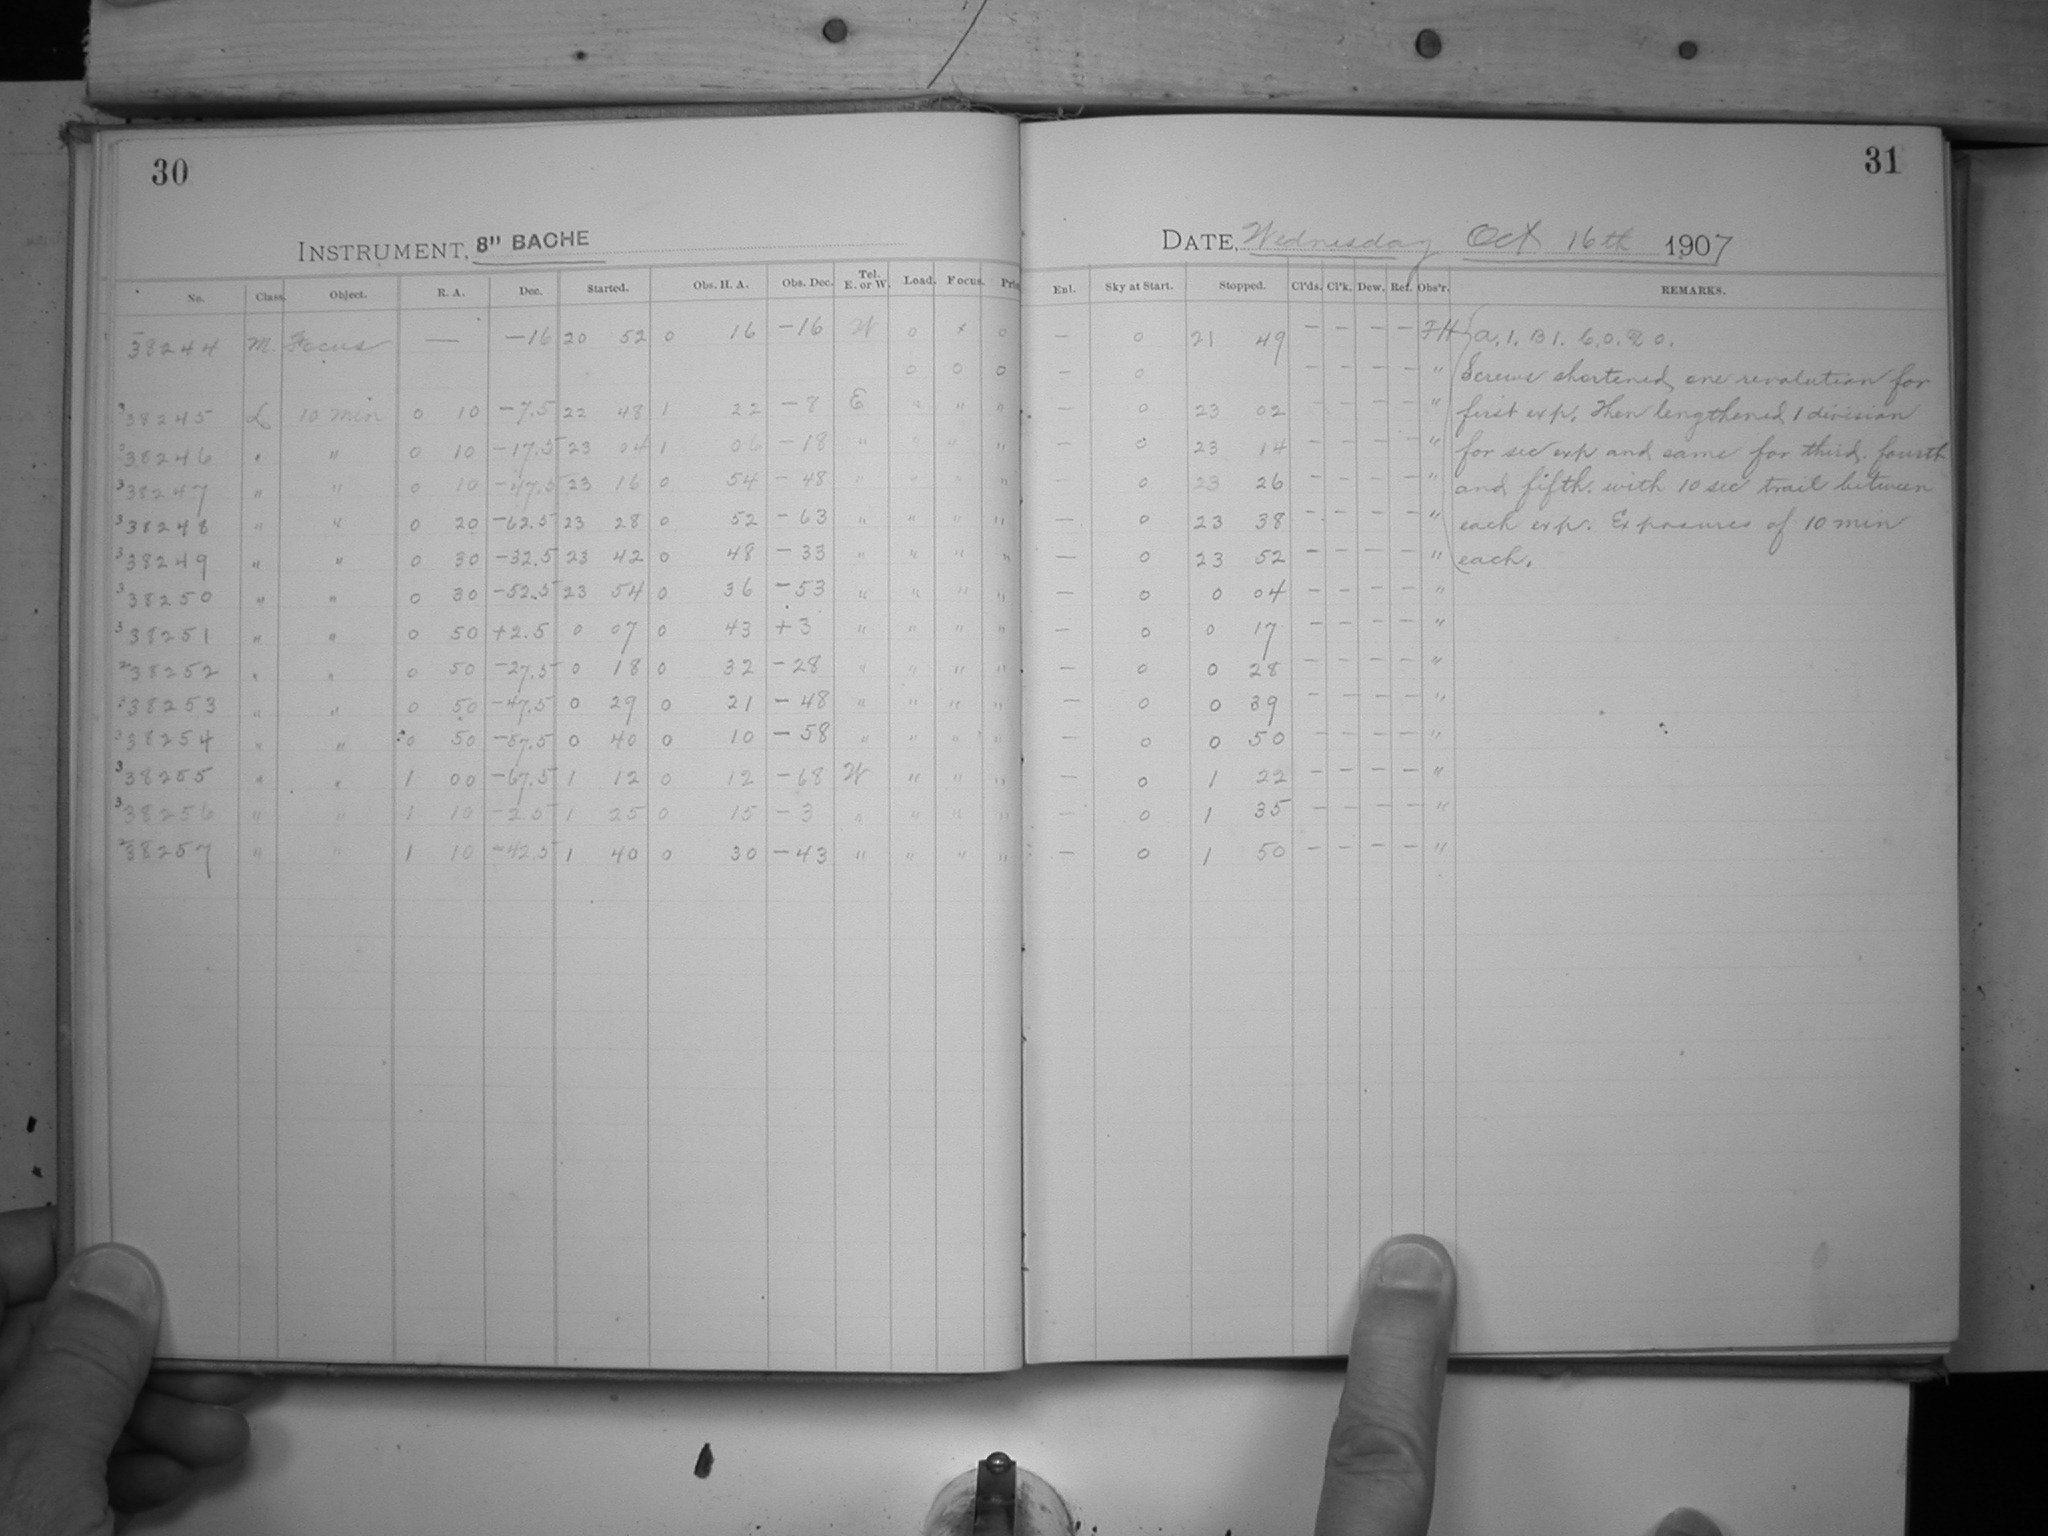 30
INSTRUMENT, 8" BACHE
No. Class. Object. R. A. Dec. Started. Obs. H. A. Obs. Dec. Tel. E. or W. Load. Focus.
38244 M. Focus — -16 20 52 0 16 -16 W 0 x 0
0 0 0
3 38245 L 10 min 0 10 -7.5 22 48 1 22 -8 E " " "
3 38246 " " 0 10 -17.5 23 04 1 06 -18 " " " "
3 38247 " " 0 10 -47.5 23 16 0 54 -48 " " " "
3 38248 " " 0 20 -62.5 23 28 0 52 -63 " " " "
3 38249 " " 0 30 -32.5 23 42 0 48 -33 " " " "
3 38250 " " 0 30 -52.5 23 54 0 36 -53 " " " "
3 38251 " " 0 50 +2.5 0 07 0 43 +3 " " " "
2 38252 " " 0 50 -27.5 0 18 0 32 -28 " " " "
38253 " " 0 50 -47.5 0 29 0 21 -48 " " " "
3 38254 " " 0 50 -57.5 0 40 0 10 -58 " " " "
3 38255 " " 1 00 -67.5 1 12 0 12 -68 W " " "
3 38256 " " 1 10 -2.5 1 25 0 15 -3 " " " "
2 38257 " " 1 10 -42.5 1 40 0 30 -43 " " " "
31
DATE, Wednesday Oct 16th 1907
Enl. Sky at Start. Stopped. Cl'ds. Cl'k. Dew. Ref. Obs'r. REMARKS.
— 0 21 49 — — — — FH a. 1. B 1. C. 0. D 0.
— 0 — — — — " Screws shortened one revolution for
— 0 23 02 — — — — " first exp. Then lengthened 1 division
— 0 23 14 — — — — " for sec exp and same for third. fourth
— 0 23 26 — — — — " and fifth. with 10 sec trail between
— 0 23 38 — — — — " each exp. Exposures of 10 min
— 0 23 52 — — — — " each.
— 0 0 04 — — — — "
— 0 0 17 — — — — "
— 0 0 28 — — — — "
— 0 0 39 — — — — "
— 0 0 50 — — — — "
— 0 1 22 — — — — "
— 0 1 35 — — — — "
— 0 1 50 — — — — "